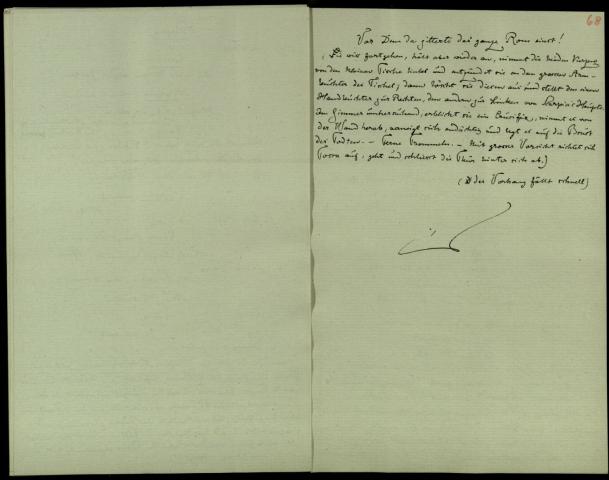 68
Vor Dem da zitterte das ganze Rom einst!
(Sie will fortgehen, hält aber wieder an, nimmt die beiden Kerzen
von dem kleinen Tische links und entzündet sie an den grossen Arm-
leuchter des Tisches, dann löscht sie diesen aus und stellt den einen
Handleuchter zur Rechten, den andern zur Linken von Scarpia's Haupte.
Im Zimmer umhersuchend, erblickt sie ein Crucifix, nimmt es von
der Wand herab, verneigt sich andächtig und legt es auf die Brust
des Todten. – Ferne Trommeln. – Mit grosser Vorsicht richtet sich
Tosca auf, geht und schliesst die Thür hinter sich ab.)
(der Vorhang fällt schnell)